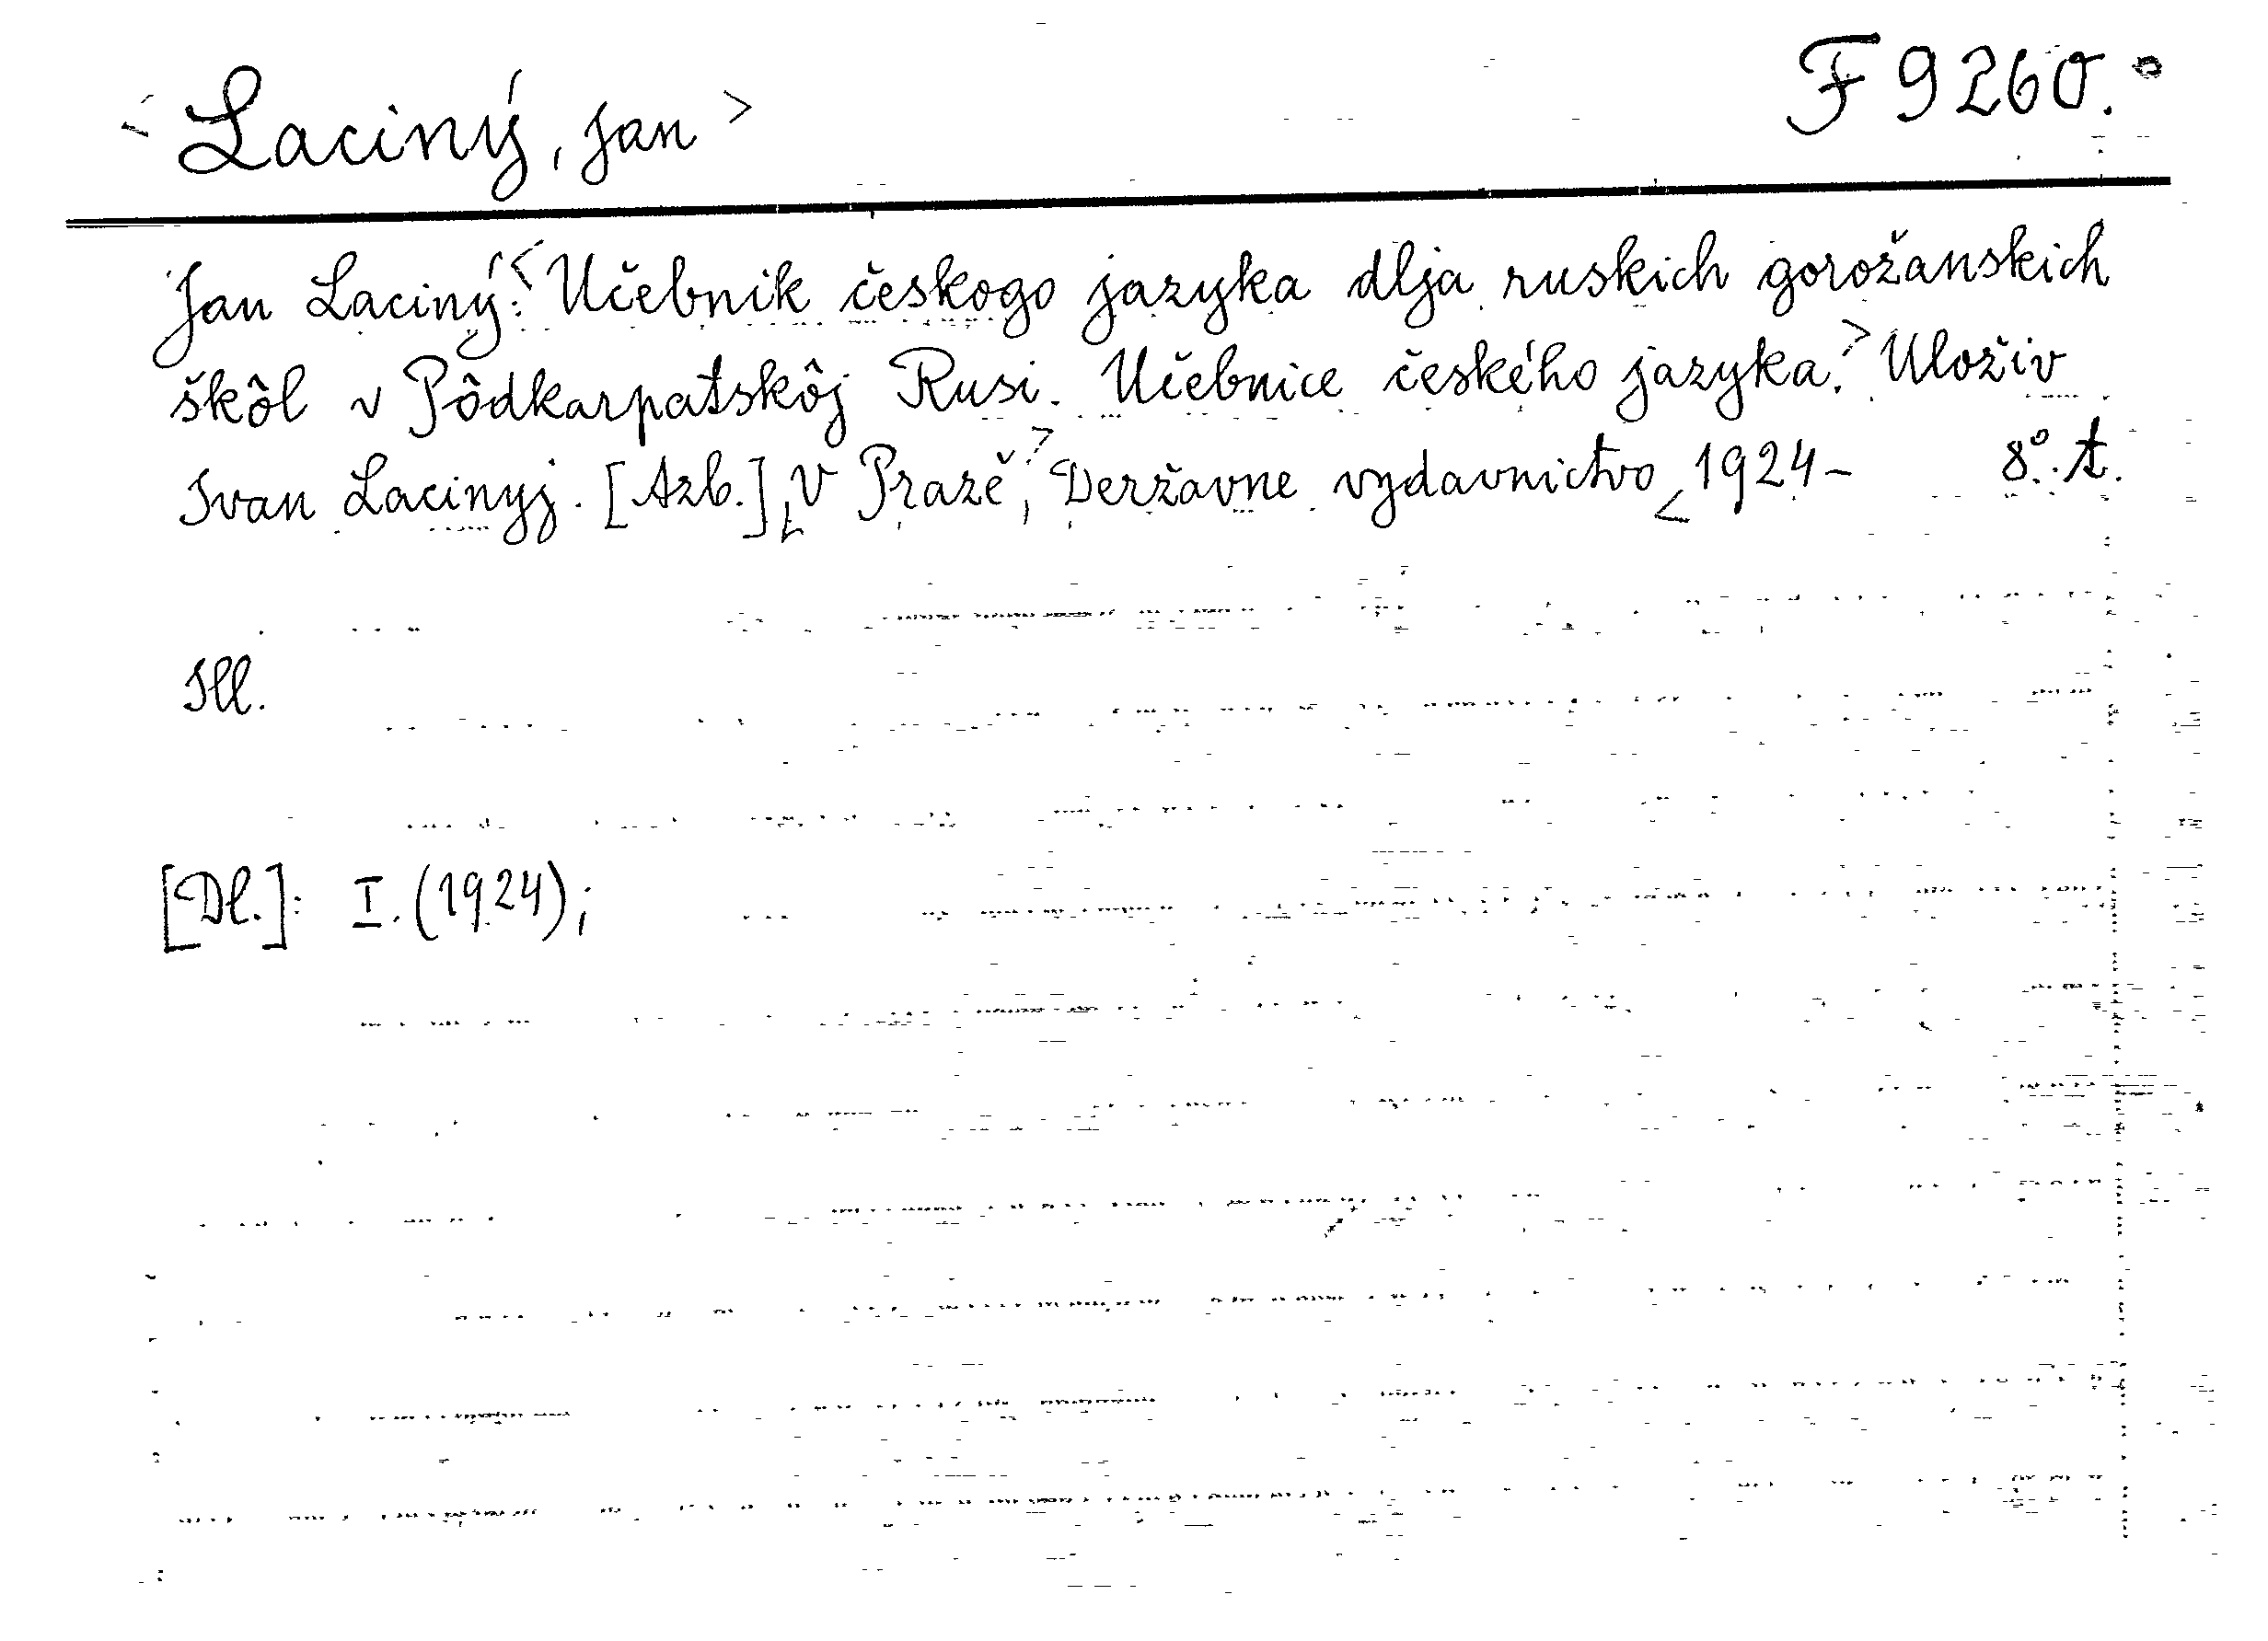 <Laciný, Jan> F 9260.
Jan Laciný: <Učebnik českogo jazyka dlja ruskich gorožanskich
škôl v Pôdkarpatskôj Rusi. Učebnice českého jazyka.> Uloživ
Ivan Lacinyj. [Azb.] V Praze, Deržavne vydavnictvo 1924– 8°. t.
Ill.
[Dl.]: I. (1924);